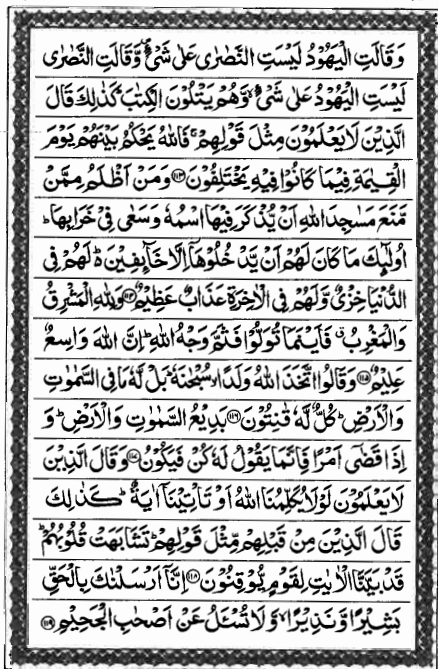 وَقَالَتِ الْيَهُوْدُ لَيْسَتِ النَّصٰرٰى عَلٰى شَىْءٍ ۪ وَّقَالَتِ النَّصٰرٰى
لَيْسَتِ الْيَهُوْدُ عَلٰى شَىْءٍ ۙ وَّهُمْ يَتْلُوْنَ الْكِتٰبَ ؕ كَذٰلِكَ قَالَ
الَّذِيْنَ لَا يَعْلَمُوْنَ مِثْلَ قَوْلِهِمْ ۚ فَاللّٰهُ يَحْكُمُ بَيْنَهُمْ يَوْمَ
الْقِيٰمَةِ فِيْمَا كَانُوْا فِيْهِ يَخْتَلِفُوْنَ ﴿۱۱۳﴾ وَمَنْ اَظْلَمُ مِمَّنْ
مَّنَعَ مَسٰجِدَ اللّٰهِ اَنْ يُّذْكَرَ فِيْهَا اسْمُهٗ وَسَعٰى فِىْ خَرَابِهَا ؕ
اُولٰٓئِكَ مَا كَانَ لَهُمْ اَنْ يَّدْخُلُوْهَاۤ اِلَّا خَآئِفِيْنَ ؕ لَهُمْ فِى
الدُّنْيَا خِزْىٌ وَّلَهُمْ فِى الْاٰخِرَةِ عَذَابٌ عَظِيْمٌ ﴿۱۱۴﴾ وَلِلّٰهِ الْمَشْرِقُ
وَالْمَغْرِبُ ۗ فَاَيْنَمَا تُوَلُّوْا فَثَمَّ وَجْهُ اللّٰهِ ؕ اِنَّ اللّٰهَ وَاسِعٌ
عَلِيْمٌ ﴿۱۱۵﴾ وَقَالُوا اتَّخَذَ اللّٰهُ وَلَدًا ۙ سُبْحٰنَهٗ ؕ بَلْ لَّهٗ مَا فِى السَّمٰوٰتِ
وَالْاَرْضِ ؕ كُلٌّ لَّهٗ قٰنِتُوْنَ ﴿۱۱۶﴾ بَدِيْعُ السَّمٰوٰتِ وَالْاَرْضِ ؕ وَ
اِذَا قَضٰۤى اَمْرًا فَاِنَّمَا يَقُوْلُ لَهٗ كُنْ فَيَكُوْنُ ﴿۱۱۷﴾ وَقَالَ الَّذِيْنَ
لَا يَعْلَمُوْنَ لَوْلَا يُكَلِّمُنَا اللّٰهُ اَوْ تَاْتِيْنَاۤ اٰيَةٌ ؕ كَذٰلِكَ
قَالَ الَّذِيْنَ مِنْ قَبْلِهِمْ مِّثْلَ قَوْلِهِمْ ؕ تَشَابَهَتْ قُلُوْبُهُمْ ؕ
قَدْ بَيَّنَّا الْاٰيٰتِ لِقَوْمٍ يُّوْقِنُوْنَ ﴿۱۱۸﴾ اِنَّاۤ اَرْسَلْنٰكَ بِالْحَقِّ
بَشِيْرًا وَّنَذِيْرًا ۙ وَّلَا تُسْـَٔلُ عَنْ اَصْحٰبِ الْجَحِيْمِ ﴿۱۱۹﴾